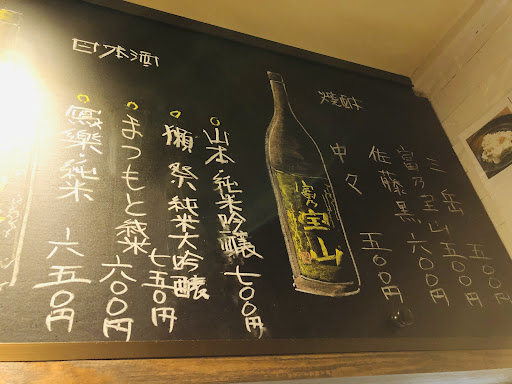 焼酎
三岳 五〇〇円
富乃宝山 五〇〇円
佐藤黒 六〇〇円
中々 五〇〇円
富乃宝山
日本酒
山本 純米吟醸 七〇〇円
獺祭 純米大吟醸 七五〇円
まつもと 純米 六〇〇円
鳳樂 純米 六五〇円